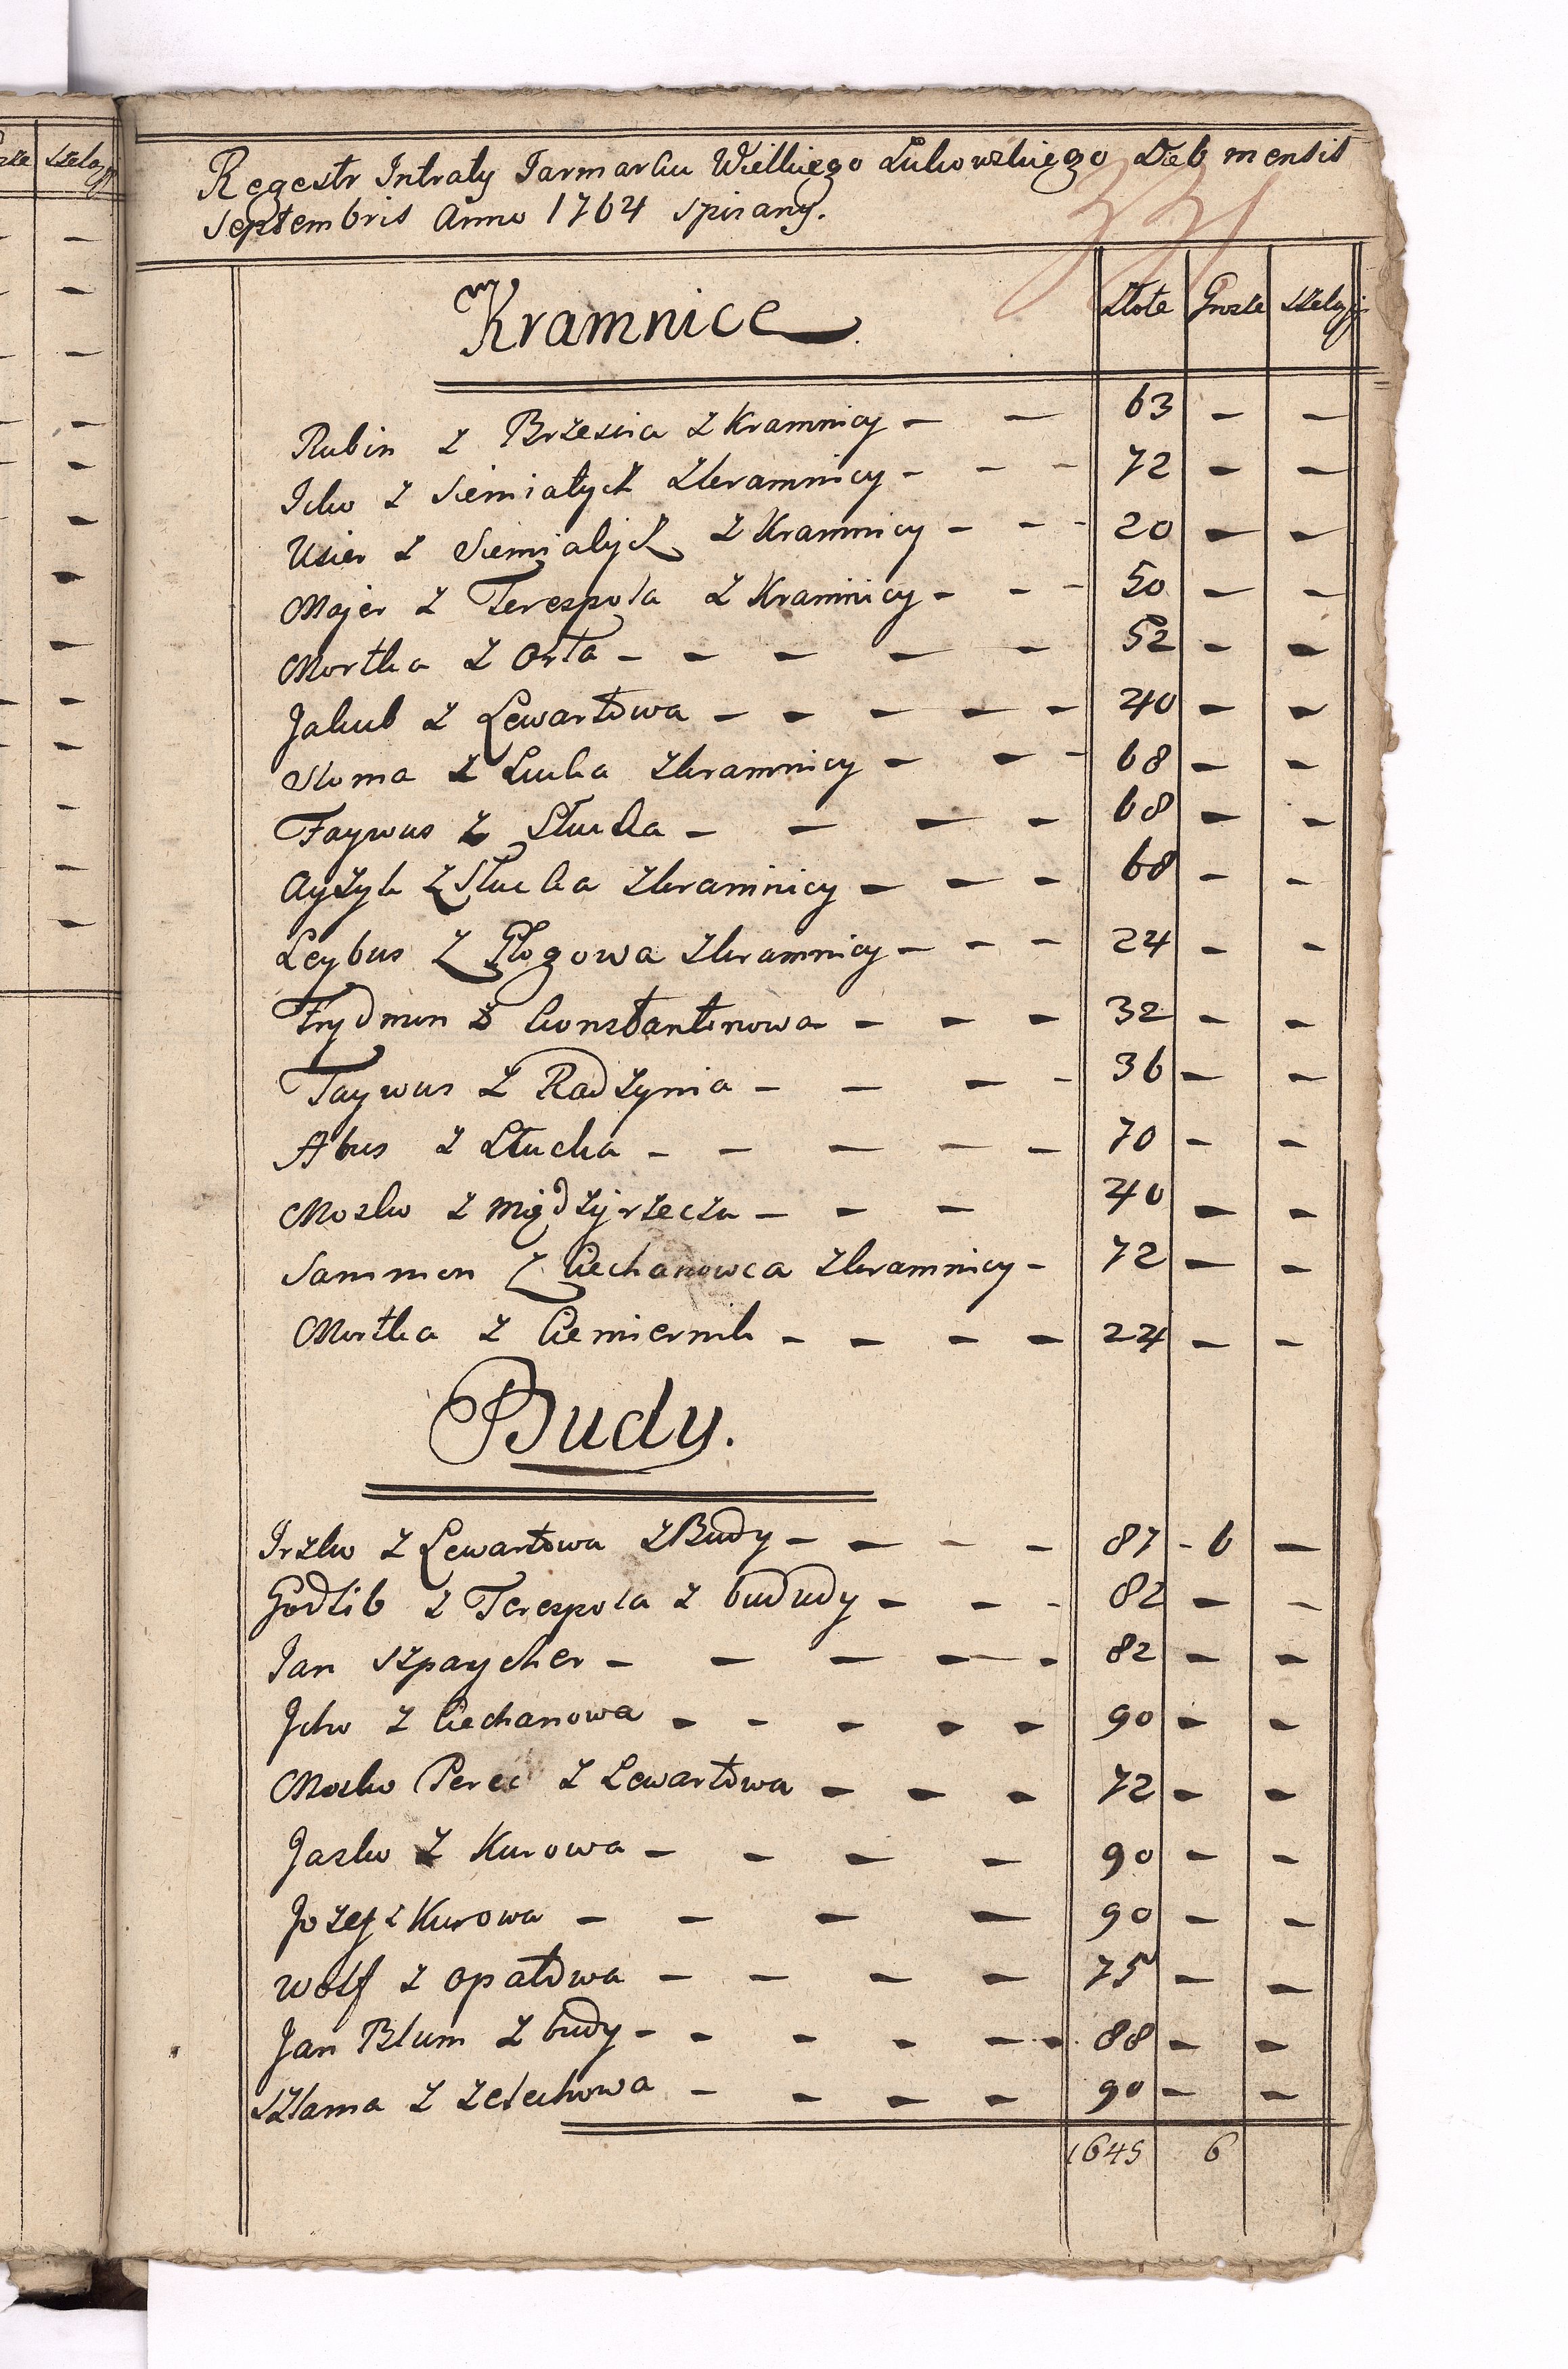 szelągi
Regestr Intraty Jarmarku Wielkiego Łukowskiego Die 6 mensis
Septembris Anno 1764 spisany.
Kramnice Złote Grosze szelągi
Rubin z Brzescia z Kramnicy – – 63 – –
Icko z Siemiatych z kramnicy – – – 72 – –
Usier z Siemiatych z Kramnicy – – – 20 – –
Majer z Terespola z Kramnicy – – – 50 – –
Mortka z Orla – – – – – 52 – –
Jakub z Lewartowa – – – – – 40 – –
Słoma z Łucka z kramnicy – – – 68 – –
Faywus z Słucka – – – – 68 – –
Ayzyk z Słucka z kramnicy – – – 68 – –
Leybus z Głogowa z kramnicy – – – 24 – –
Frydman z Constantinowa – – – 32 – –
Faywus z Radzynia – – – – 36 – –
Abus z Słucka – – – – – 70 – –
Mosko z Międzyrzecza – – – 40 – –
Sammon z Ciechanowca z kramnicy – 72 – –
Mortka z Ciemiernik – – – – 24 – –
Budy.
Irzko z Lewartowa z Budy – – – – 87 – 6 –
Godlib z Terespola z bududy – – – 82 – –
Jan Szpaycher – – – – – 82 – –
Icko z Ciechanowa – – – – – 90 – –
Mosko Perec z Lewartowa – – – 72 – –
Jasko z Kurowa – – – – 90 – –
Jozef z Kurowa – – – – 90 – –
Wolf z Opatowa – – – – 75 – –
Jan Blum z budy – – – – – – 88 – –
Szlama z Zelechowa – – – – 90 – –
1645 6